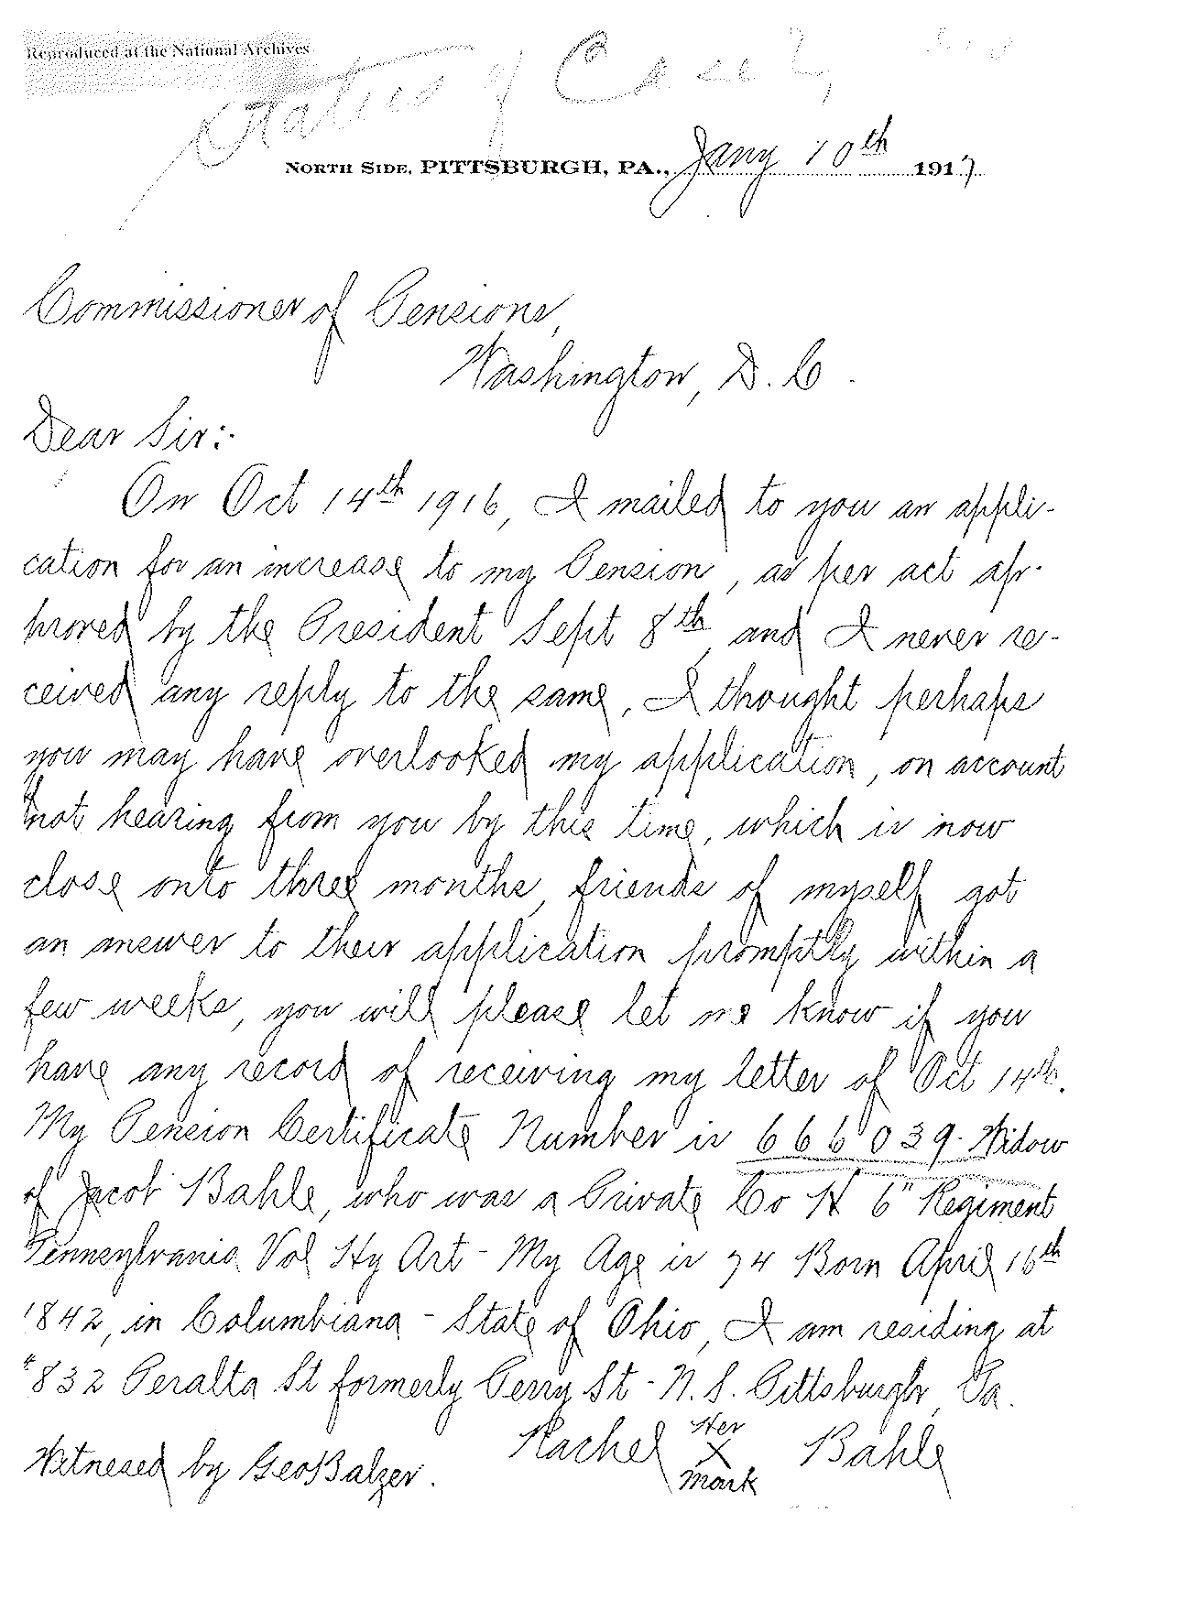 Reproduced at the National Archives
Status of Case?
NORTH SIDE, PITTSBURGH, PA., Jany 10th 1917
Commissioner of Pensions,
Washington, D. C.
Dear Sir:-
On Oct 14th 1916, I mailed to you an appli-
cation for an increase to my Pension, as per act ap-
proved by the President Sept 8th, and I never re-
ceived any reply to the same, I thought perhaps
you may have overlooked my application, on account
not hearing from you by this time, which is now
close onto three months, friends of myself got
an answer to their application promptly within a
few weeks, you will please let me know if you
have any record of receiving my letter of Oct 14th.
My Pension Certificate Number is 666039. Widow
of Jacob Bahle, who was a Private Co H 6" Regiment
Pennsylvania Vol Hy Art - My Age is 74 Born April 16th
1842, in Columbiana - State of Ohio, I am residing at
#832 Peralta St formerly Perry St - N. S. Pittsburgh, Pa.
Rachel Her X Mark Bahle
Witnesed by Geo Balzer.